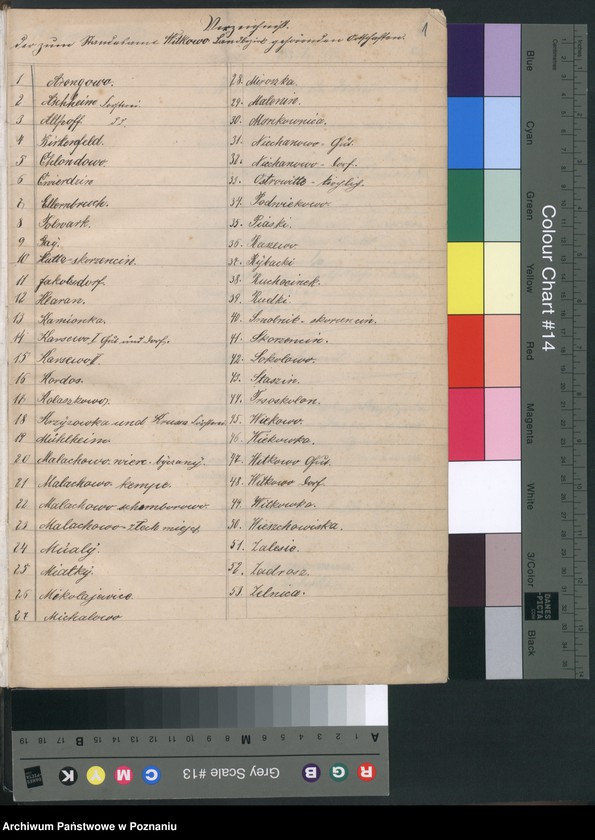 Verzeichniß.
1
der zum Standesamt Witkowo Landbezirk gehörenden Ortschaften.
1 Arongowo.
2 Aschheim
3 Althoff
4 Birkenfeld.
5 Chlondowo.
6 Cwierdzin
7 Ellernbruch.
8 Folwark.
9 Gay.
10 Hutta-skorzencin.
11 Jakobsdorf.
12
13 Kamionka.
14 Karsewo I Gut und Dorf.
15 Karsewo II.
16 Kordos.
17 Kolaszkowo.
18 Krzyzowka und
19 Mühlheim
20 Malachowo wierz-bijczany.
21 Malachowo kempe.
22 Malachowo schemborowo.
23 Malachowo-zlech miejsc.
24
25 Mialky.
26 Mikolajewice
27 Michalowo
28. Mirozka.
29. Malenin.
30. Monkownica.
31. Niechanowo-Gut.
32. Niechanowo-Dorf.
33. Ostrowitte-
34. Podwiekowo.
35. Piaski.
36.
37. Rybacki
38. Ruchocinek.
39. Rudki.
40. Smolnik-skorzencin.
41. Skorzencin.
42. Sokolowo.
43. Stazin.
44. Trzoskolon.
45. Wiekowo.
46. Wiekowka.
47. Witkowo Gut.
48. Witkowo Dorf.
49. Witkowka.
50. Wierzchowiska.
51. Zalesio.
52.
53. Zelnica.
Blue
Cyan
Green
Yellow
Red
Magenta
White
3/Color
Black
Colour Chart #14
Inches
Centimetres
DANES
-PICTA
Grey Scale #13
R G B C M Y K
A 1 2 3 4 5 6 M 8 9 10 11 12 13 14 15 B 17 18 19
Archiwum Państwowe w Poznaniu